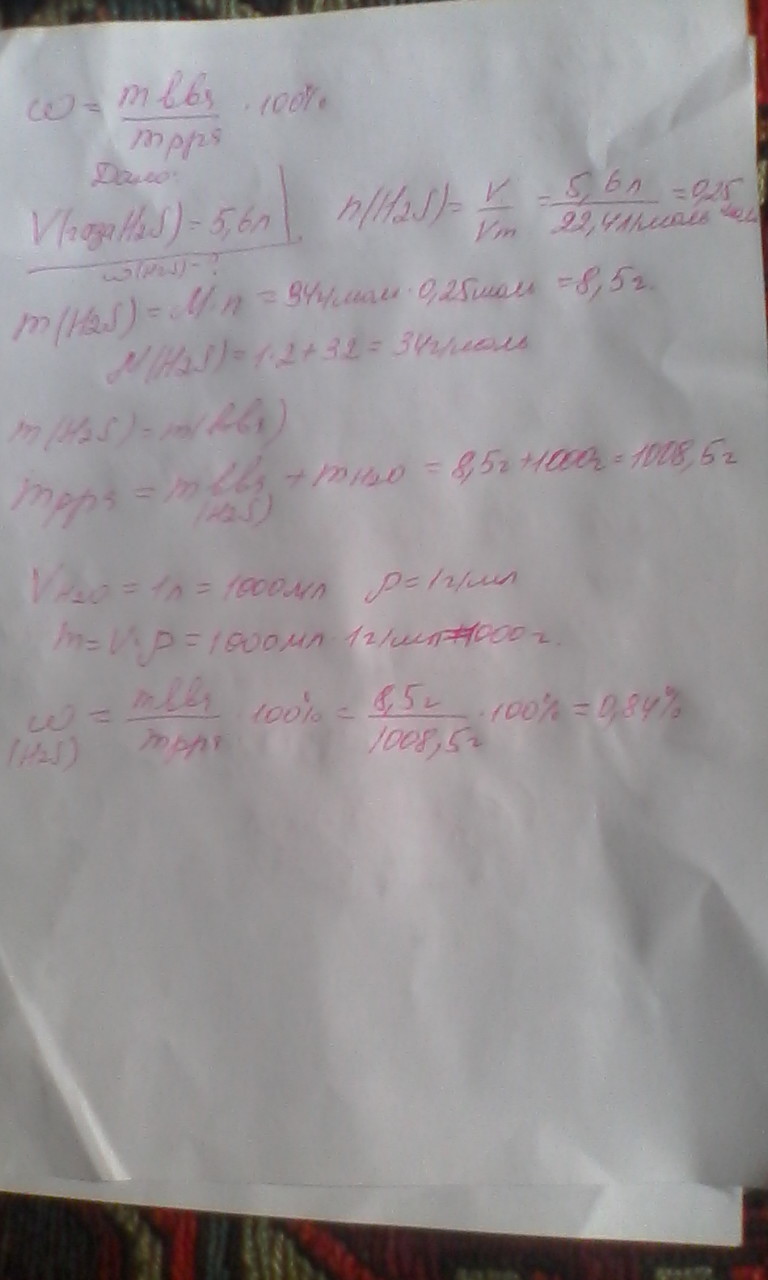 ω = m в-ва / m р-ра · 100%
Дано:
V(газа H2S) = 5,6л
n(H2S) = V / Vm = 5,6л / 22,4л/моль = 0,25 моль
ω(H2S) - ?
m(H2S) = M · n = 34г/моль · 0,25моль = 8,5г.
M(H2S) = 1·2+32 = 34г/моль
m(H2S) = m(в-ва)
m р-ра = m в-ва (H2S) + m H2O = 8,5г+1000г = 1008,5г
V H2O = 1л = 1000мл ρ = 1г/мл
m = V · ρ = 1000мл · 1г/мл = 1000г.
ω (H2S) = m в-ва / m р-ра · 100% = 8,5г / 1008,5г · 100% = 0,84%